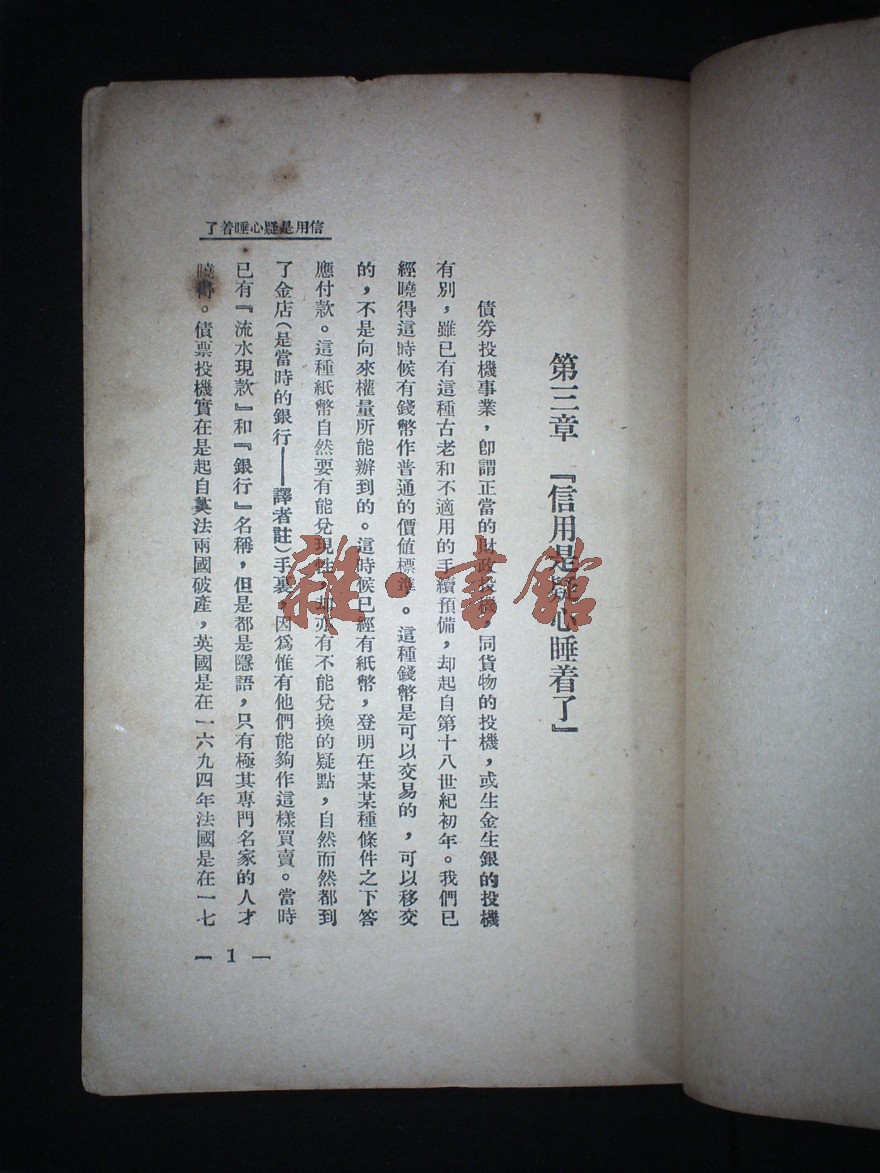 信用是疑心睡着了
第三章 『信用是疑心睡着了』
債券投機事業，卽謂正當的財政投機，同貨物的投機，或生金生銀的投機
有別，雖已有這種古老和不適用的手續預備，却起自第十八世紀初年。我們已
經曉得這時候有錢幣作普通的價值標準。這種錢幣是可以交易的，可以移交
的，不是向來權量所能辦到的。這時候已經有紙幣，登明在某某種條件之下答
應付款。這種紙幣自然要有能兌現性，却亦有不能兌換的疑點，自然而然都到
了金店（是當時的銀行——譯者註）手裏，因爲惟有他們能夠作這樣買賣。當時
已有『流水現款』和『銀行』名稱，但是都是隱語，只有極其專門名家的人才
曉得。債票投機實在是起自英法兩國破產，英國是在一六九四年法國是在一七
— 1 —
雜·書館